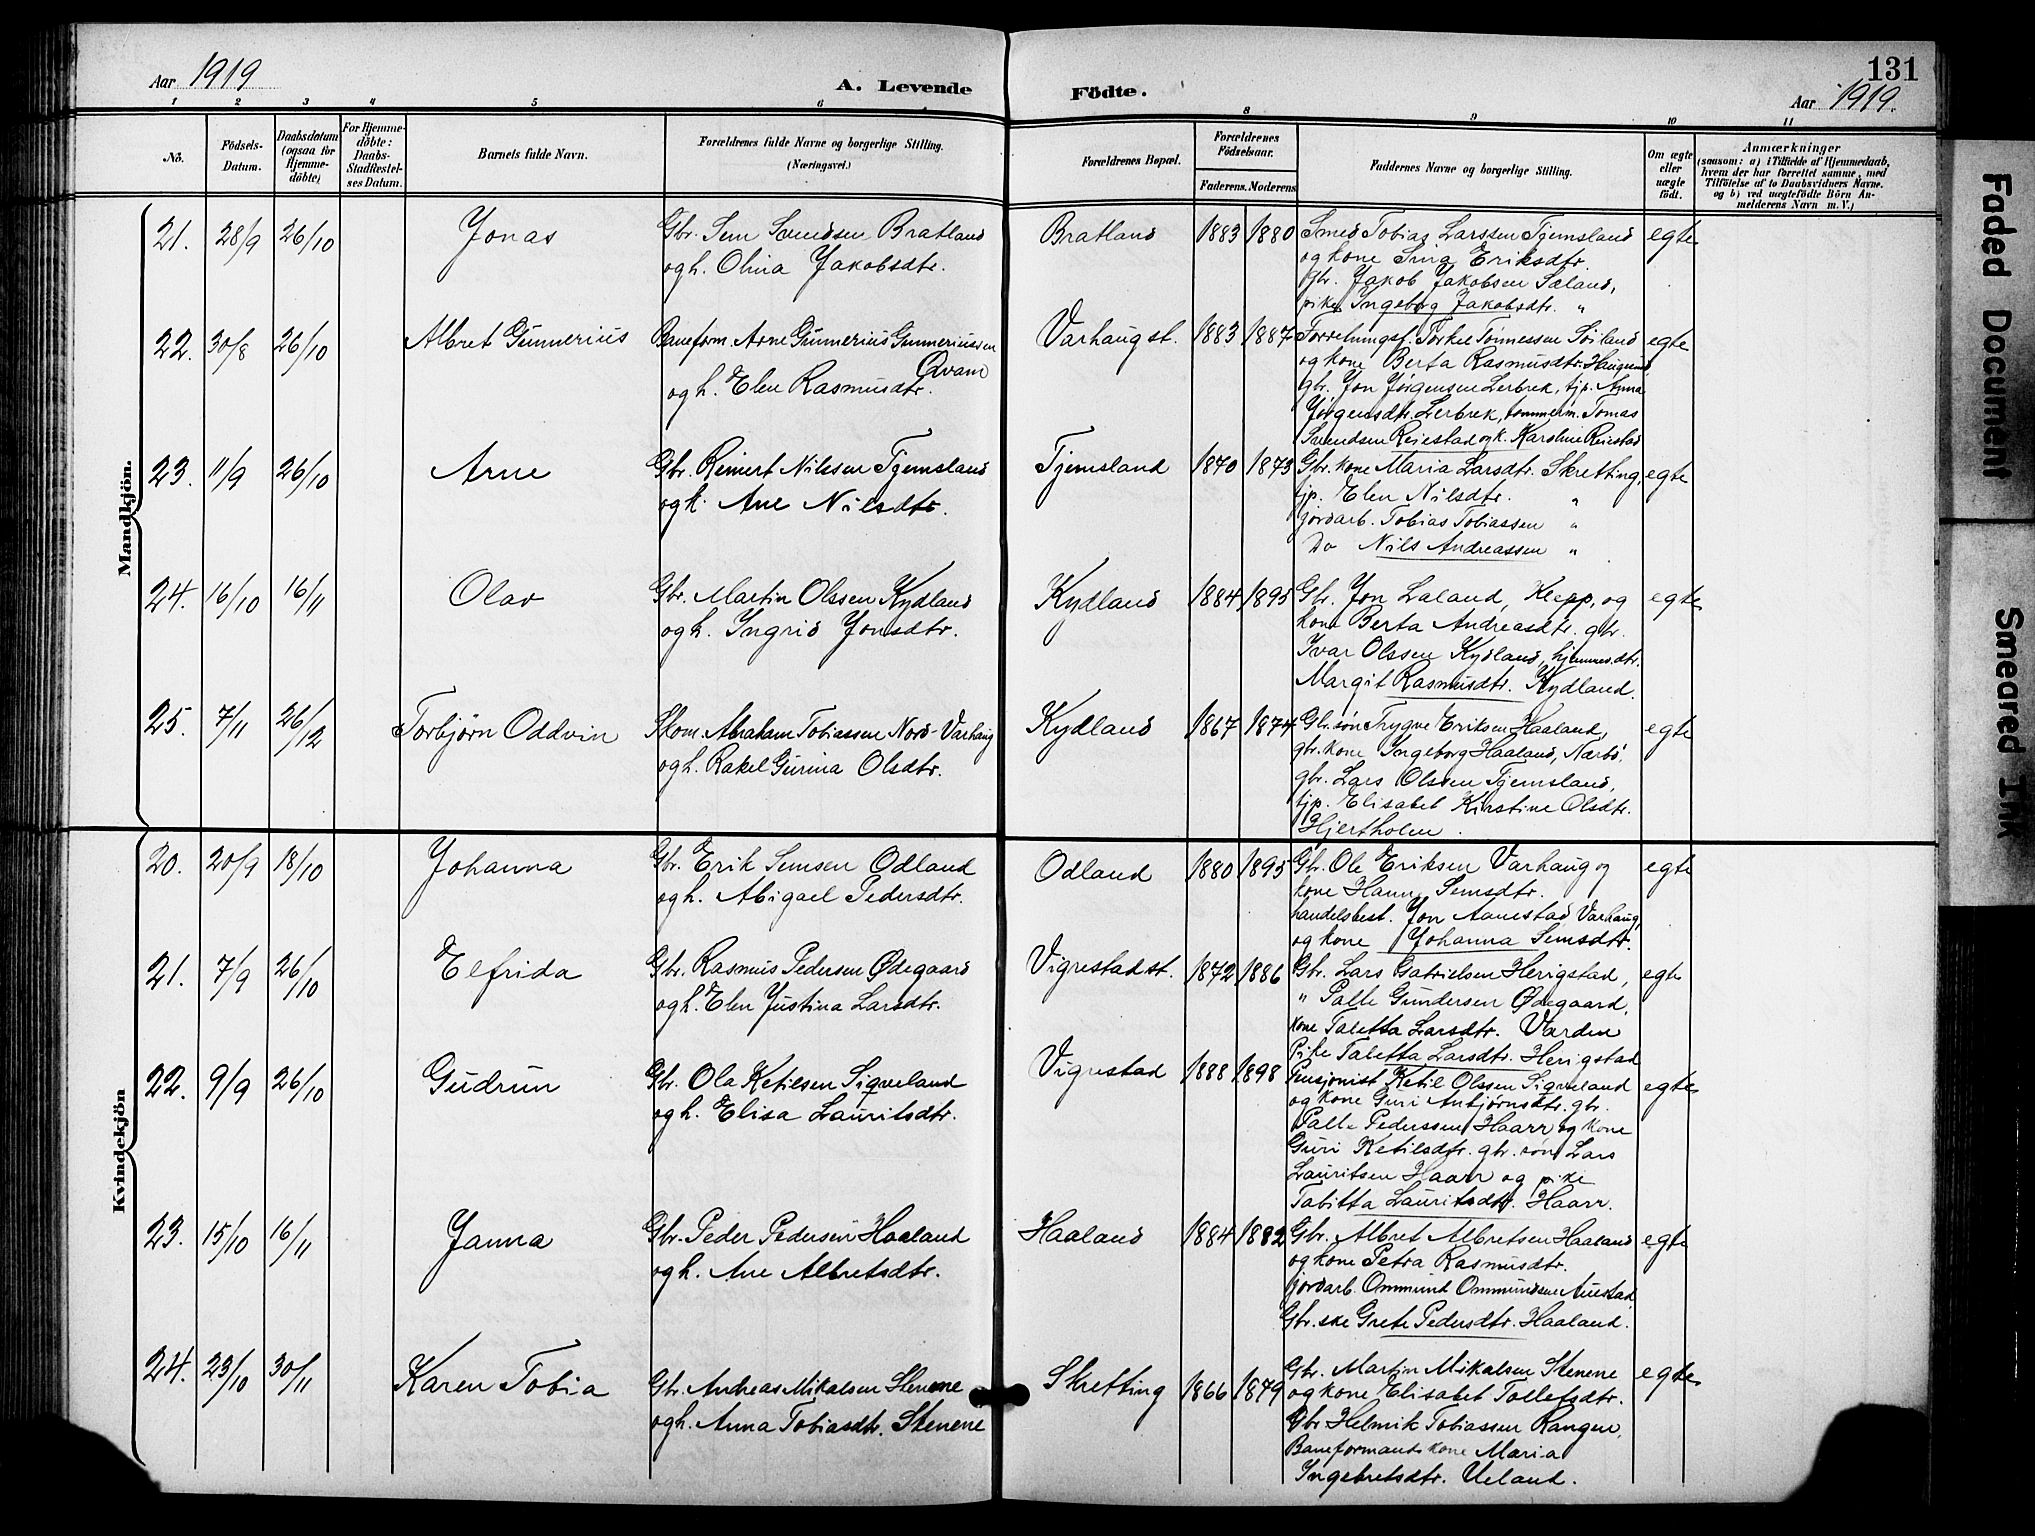 131
Aar 1919
A. Levende
Födte.
Aar 1919.
1 2 3 4 5 6 8 9 10 11
No.
Födsels-
Datum.
Daabsdatum
(ogsaa for
Hjemme-
döbte)
For Hjemme-
döbte:
Daabs-
Stadfæstel-
ses Datum.
Barnets fulde Navn.
Forældrenes fulde Navne og borgerlige Stilling.
(Næringsvei.)
Forældrenes Bopæl.
Forældrenes
Födselsaar.
Faderens. Moderens
Faddernes Navne og borgerlige Stilling.
Om ægte
eller
uægte
födt.
Anmærkninger
(saasom: a) i Tilfælde af Hjemmedaab,
hvem der har forrettet samme, med
Tilföielse af to Daabsvidners Navne.
og b) ved uægtefödte Börn An-
melderens Navn m. V.)
Mandkjön.
21. 28/9 26/10 Jonas Gbr. Sem Svendsen Bratland Bratland 1883 1880 Smed Tobias Larssen Tjemsland egte
og h. Olina Jakobsdtr. og kone Eriksdtr.
gbr. Jakob Jakobsen Sæland,
pike Ingeborg Jakobsdtr. "
22. 30/8 26/10 Albret Gunnerius Baneform. Arne Gunnerius Gunneriussen Varhaug st. 1883 1887 Forretningsf. Torkel Tønnessen Søiland egte
Qvam og kone Berta Rasmusdtr.
og h. Elen Rasmusdtr. gbr. Jon Jørgensen Lerbrek, tjp. Anna
Jørgensdtr. Lerbrek, tømmerm. Tomas
Svendsen Reiestad og k. Karoline Reiestad
23. 11/9 26/10 Arne Gbr. Reinert Nilsen Tjemsland Tjemsland 1870 1873 Gbr. kone Maria Larsdtr. Skretting, egte
og h. Ane Nilsdtr. tjp. Elen Nilsdtr. "
jordarb. Tobias Tobiassen "
Do Nils Andreassen "
24. 16/10 16/11 Olav Gbr. Martin Olssen Kydland Kydland 1884 1895 Gbr. Jon Laland, Klepp, og egte
og h. Ingrid Jonsdtr. kone Berta Andreasdtr. gbr.
Ivar Olssen Kydland, hjemmev. dtr.
Margit Rasmusdtr. Kydland.
25. 7/11 26/12 Torbjørn Oddvin Skom. Abraham Tobiassen Nord-Varhaug Kydland 1867 1874 Gbr. søn Trygve Eriksen Haaland, egte
og h. Rakel Gurina Olsdtr. gbr. kone Ingeborg Haaland, Nærbø,
gbr. Lars Olssen Tjemsland,
tjp. Elisabet Kirstine Olsdtr.
Hjertholm.
Kvindekjön
20. 20/9 18/10 Johanna Gbr. Erik Semsen Odland Odland 1880 1895 Gbr. Ole Eriksen Varhaug og egte
og h. Abigael Pedersdtr. kone Hanna Semsdtr.
handelsbest. Jon Aanestad Varhaug,
og kone Johanna Semsdtr.
21. 7/9 26/10 Elfrida Gbr. Rasmus Pedersen Ødegaard Vigrestad st. 1872 1886 Gbr. Lars Gabrielsen Herigstad, egte
og h. Elen Justina Larsdtr. " Palle Gundersen Ødegaard,
kone Taletta Larsdtr. Varden
Pike Taletta Larsdtr. Herigstad
22. 9/9 26/10 Gudrun Gbr. Ola Ketilsen Sigveland Vigrestad 1888 1898 Pensjonist Ketil Olssen Sigveland egte
og h. Elisa Lauritsdtr. og kone Guri Anbjørnsdtr. gbr.
Palle Pederssen Haarr og kone
Guri Ketilsdtr. gbr. søn Lars
Lauritsen Haarr og pike
Tabitta Lauritsdtr. Haarr.
23. 15/10 16/11 Janna Gbr. Peder Pedersen Haaland Haaland 1884 1882 Gbr. Albret Albretsen Haaland egte
og h. Ane Albretsdtr. og kone Petra Rasmusdtr.
jordarb. Ommund Ommundsen Auestad,
Gbr. ske Grete Pedersdtr. Haaland.
24. 23/10 30/11 Karen Tobia Gbr. Andreas Mikalsen Stenene Skretting 1866 1879 Gbr. Martin Mikalsen Stenene egte
og h. Anna Tobiasdtr. Stenene og kone Elisabet Tollefsdtr.
Gbr Helmik Tobiassen Rangen,
Baneformands kone Maria
Ingebretsdtr. Ueland.
Faded Document
Smeared Ink